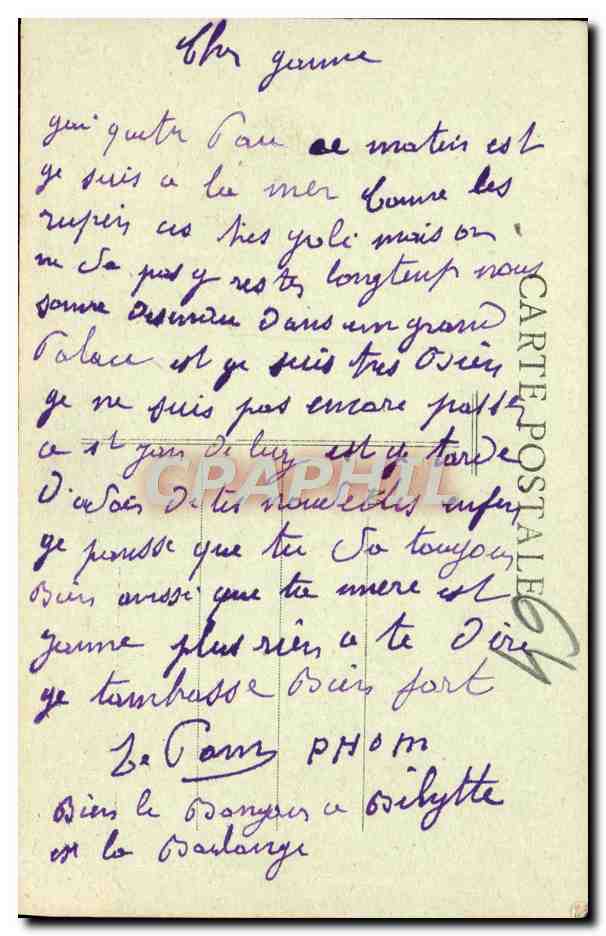 Cher jeanne
gai quetn Pau ce matin est
ge suis a la mer Comme les
rupin ces tres goli mais on
ne Sa pas y reste longtemp nous
somme desendu Dans un grand
Palace est ge suis tres Bien
ge ne suis pas encore passe
a st jan De luz est ge tarde
D'avoir De tes nouvelles enfin
ge pensse que tu Va toujour
Bien aussi que ta mere est
jeanne plus rien a te Dire
ge tambrasse Bien fort
PHOM
Bien le Bonjour a Bibytte
est la Boulange
CARTE POSTALE
64
CPAPHIL